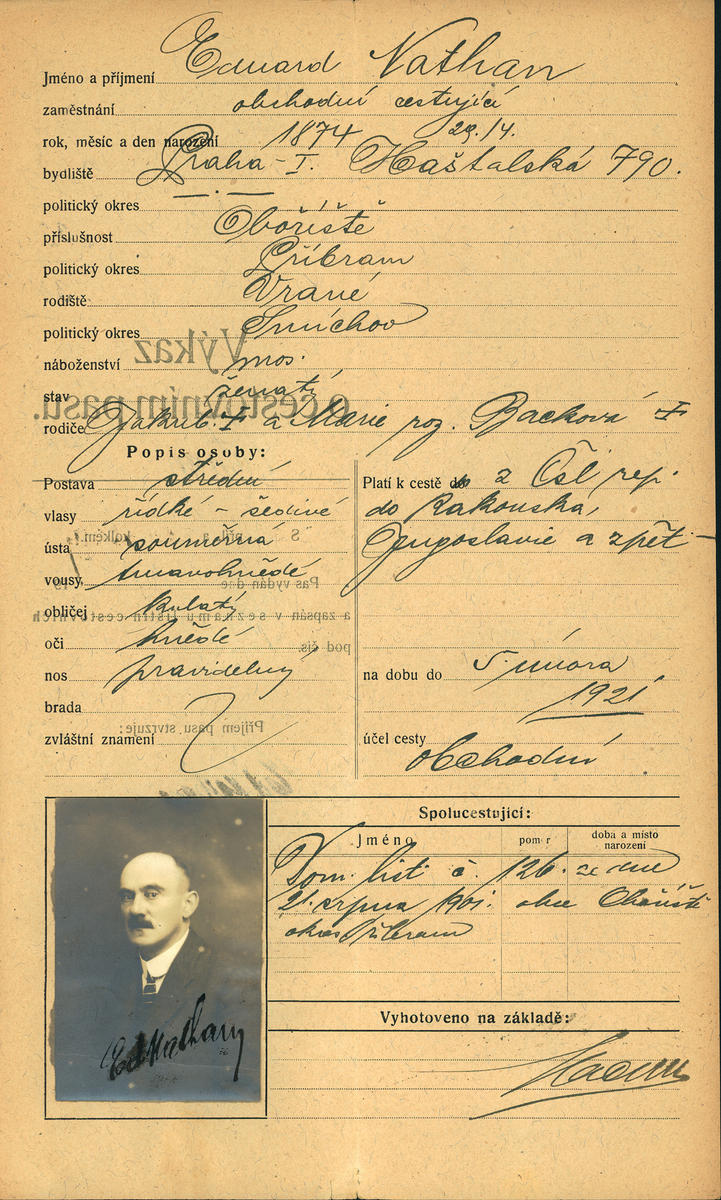 Jméno a příjmení Eduard Nathan
zaměstnání obchodní cestující
rok, měsíc a den narození 1874 29./4.
bydliště Praha - I. Haštalská 790.
politický okres — . —
příslušnost Obořiště
politický okres Příbram
rodiště Vrané
politický okres Smíchov
náboženství mos.
stav ženatý
rodiče Jakub † a Marie roz. Backová †
Výkaz
o cestovním pasu.
Popis osoby:
Postava střední
vlasy řídké - šedivé
ústa souměrná
vousy tmavohnědé
obličej kulatý
oči hnědé
nos pravidelný
brada
zvláštní znamení
S kolkem.
Pas vydán dne
a zapsán v seznamu listin cestovních
pod čís.
Příjem pasu stvrzuje:
Platí k cestě do z Čsl rep.
do Rakouska,
Jugoslavie a zpět -
na dobu do 5. února
1921
účel cesty obchodní
Spolucestující:
Jméno poměr doba a místo narození
Dom. list č. 126. ze dne
21. srpna 1901. obce Obořiště
okres Příbram
Vyhotoveno na základě:
Ed Nathan